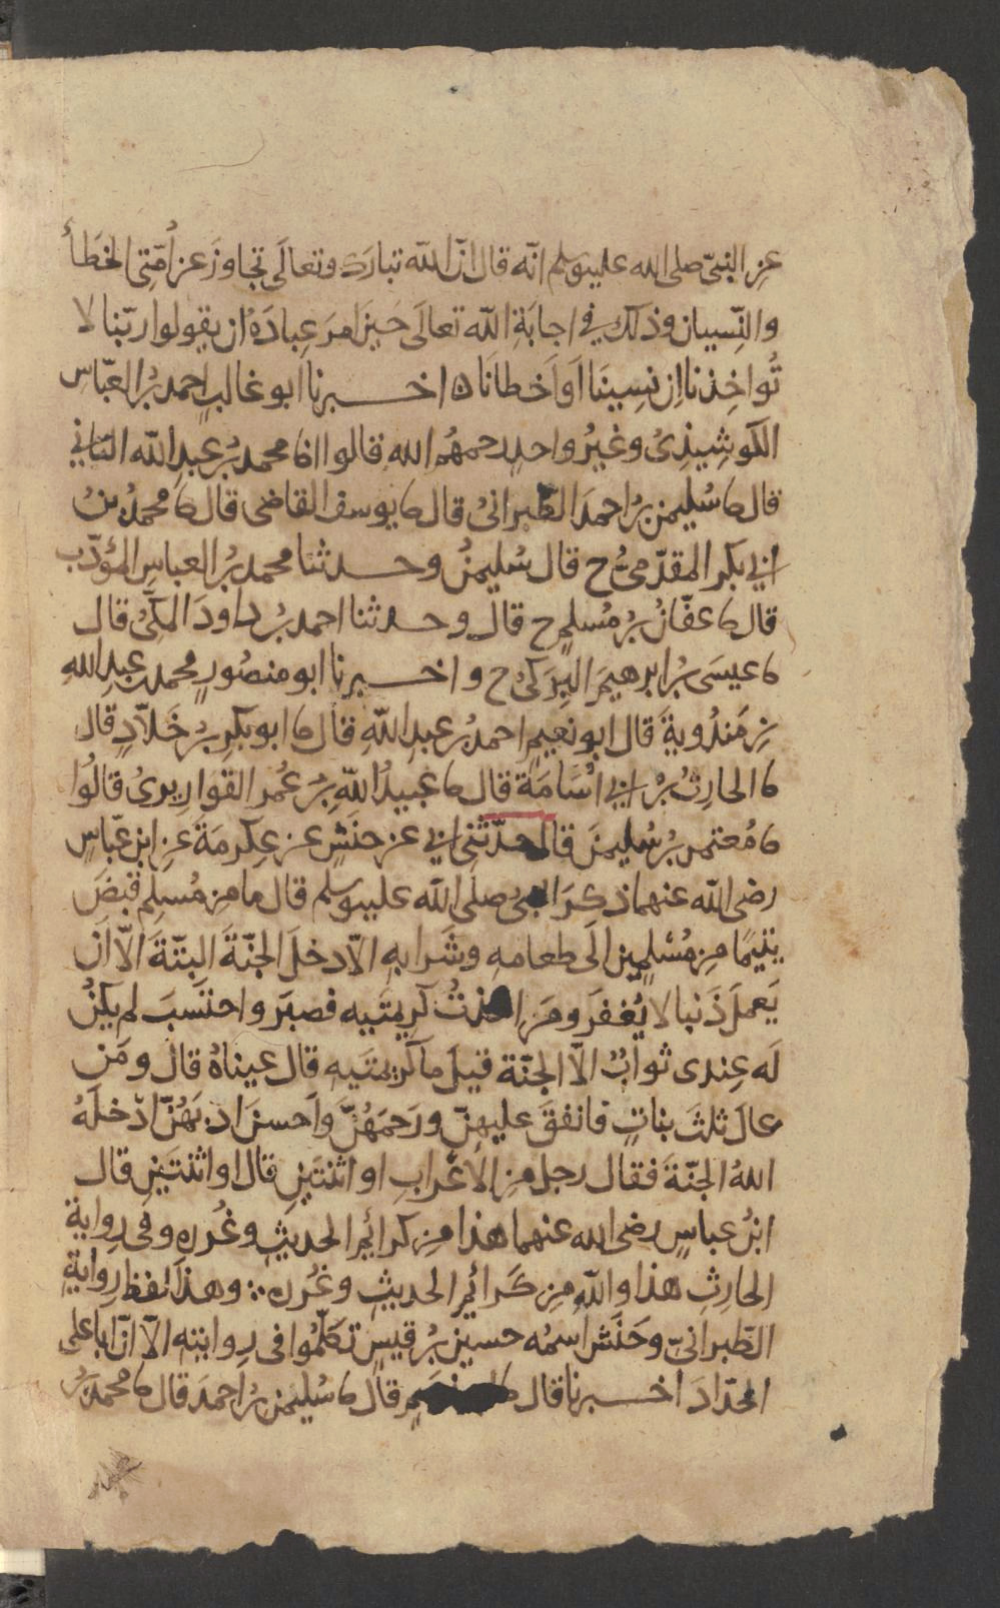 عن النبيّ صلى الله عليه وسلم انّه قال انّ اللّه تبارك وتعالَى تجاوزَ عن اُمّتي الخطَأ
والنِّسيان وذلك في اجابَةِ اللّه تعالَى حينَ امرَ عِبادَهُ ان يقولوا ربّنا لا
تُواخِذنا اِن نسِينَا اَو اَخطانَا ه اخــبرنا ابو غالبٍ احمد بنُ العبّاس
الكوشِيذِيُ وغيرُ واحدٍ رحمهُم الله قالوا انا محمد بنُ عبدِ اللّه التاني
قال نا سُليمن بنُ احمدَ الطّبرانيُ قال نا يوسف القاضى قال نا محمدُ بنُ
ابي بكرٍ المقدّميُ ح قال سُليمنُ وحــدثنا محمد بنُ العباسِ المؤدّب
قال نا عفّانُ بنُ مُسلمٍ ح قال وحــدثنا احمد بنُ داودَ المكّيُ قال
نا عيسَى بنُ ابرهيمَ البِرَكيُ ح واخــبرنا ابو منصُورٍ محمد بن عبدِ اللهِ
بن مَندُويةَ قال ابو نعيمٍ احمد بنُ عبدِ اللّهِ قال نا ابو بكرِ بنُ خَلاّدٍ قال
نا الحارِثُ بنُ ابي اُسَامَة قال نا عُبيدُ اللّهِ بنُ عُمر القوارِيرِيُ قالُوا
نا مُعتمر بنُ سُليمنَ قال حدّثني ابي عن حنَشٍ عن عِكرمَةَ عن ابن عبّاسٍ
رضى اللّه عنهما ذكرَ النبيُ صلى اللّه عليه وسلم قال ما من مُسلِمٍ قبضَ
يتيمًا من مُسْلمِين الَى طعامهِ وشَرابهِ الاّ دخلَ الجنّةَ البتّةَ الاّ اَن
يَعملَ ذَنبا لا يُغفرَ ومَن اخذتُ كريمتَيه فصبَر واحتسَبَ لم يكنُ
لَه عِندى ثوابٌ الاّ الجنّة قيلَ ما كريمتَيهِ قال عيناهُ قال ومَن
عالَ ثلثَ بناتٍ فانفقَ عليهِنّ ورَحمَهُنَّ واَحسنَ ادبَهُنّ ادخلَهُ
اللهُ الجنّةَ فقال رجل من الاَعْرابِ او اثنتَينِ قال او اثنتَينِ قال
ابنُ عباسٍ رضى الله عنهما هذا من كرائِمِ الحديثِ وغُررِه وفى رِوايةِ
الحارِثِ هذا واللّهِ من كَرائمِ الحديثِ وغُررِه ∴ وهذا لفظ رِوايةِ
الطّبرانيّ وحَنَش اسمُه حسين بنُ قيسٍ تكلّمُوا فى رِوايتهِ الاّ انّ ابا على
الحدّادَ اخــبرنا قال قال نا سُليمن بنُ احمدَ قال نا محمد بنُ